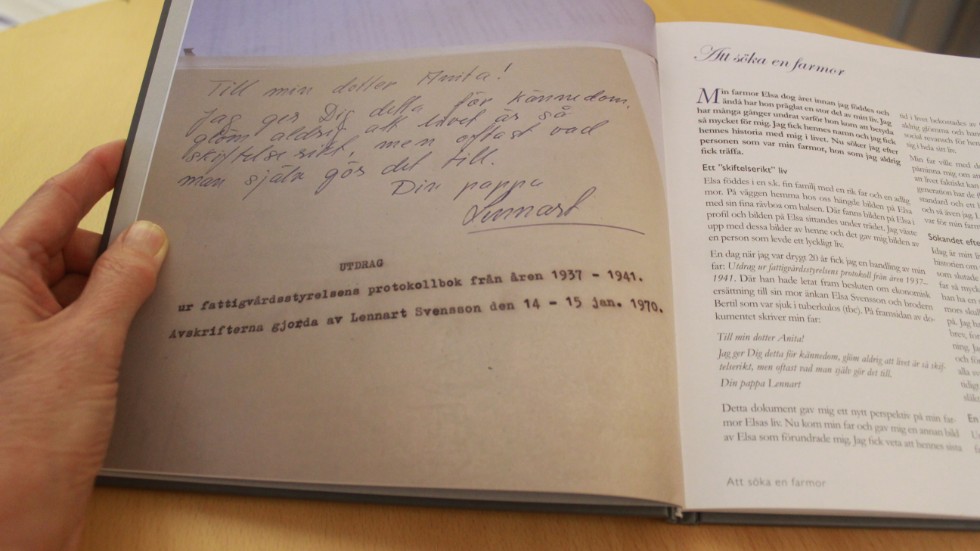 Till min dotter Anita!
Jag ger Dig detta för kännedom,
glöm aldrig att livet är så
skiftelserikt, men oftast vad
man själv gör det till.
Din pappa
Lennart
UTDRAG
ur fattigvårdsstyrelsens protokollbok från åren 1937 - 1941.
Avskrifterna gjorda av Lennart Svensson den 14 - 15 jan. 1970.
Att söka en farmor
Min farmor Elsa dog året innan jag föddes och
ändå har hon präglat en stor del av mitt liv. Jag
har många gånger undrat varför hon kom att betyda
så mycket för mig. Jag fick hennes naron och jag fick
hennes historia med mig i livet. Nu söker jag efter
personen som var min farmor, hon som jag aldrig
fick träffa.
Ett "skiftelserikt" liv
Elsa föddes i en s.k. fin familj med en rik far och en adlig
mor. På väggen hemma hos oss hängde bilden på Elsa
med sin fina rävboa om halsen. Där fanns bilden på Elsa i
profil och bilden på Elsa sittandes under trädet. Jag växte
upp med dessa bilder av henne och det gav mig bilden av
en person som levde ett lyckligt liv.
En dag när jag var drygt 20 år fick jag en handling av min
far: Utdrag ur fattigvårdsstyrelsens protokoll från åren 1937–
1941. Där han hade letat fram besluten om ekonomisk
ersättning till sin mor änkan Elsa Svensson och brodern
Bertil som var sjuk i tuberkulos (tbc). På framsidan av do-
kumentet skriver min far:
Till min dotter Anita!
Jag ger Dig detta för kännedom, glöm aldrig att livet är så skif-
telserikt, men oftast vad man själv gör det till.
Din pappa Lennart
Detta dokument gav mig ett nytt perspektiv på min far-
mor Elsas liv. Nu kom min far och gav mig en annan bild
av Elsa som förundrade mig. Jag fick veta att hennes sista
Att söka en farmor
Sökandet efte